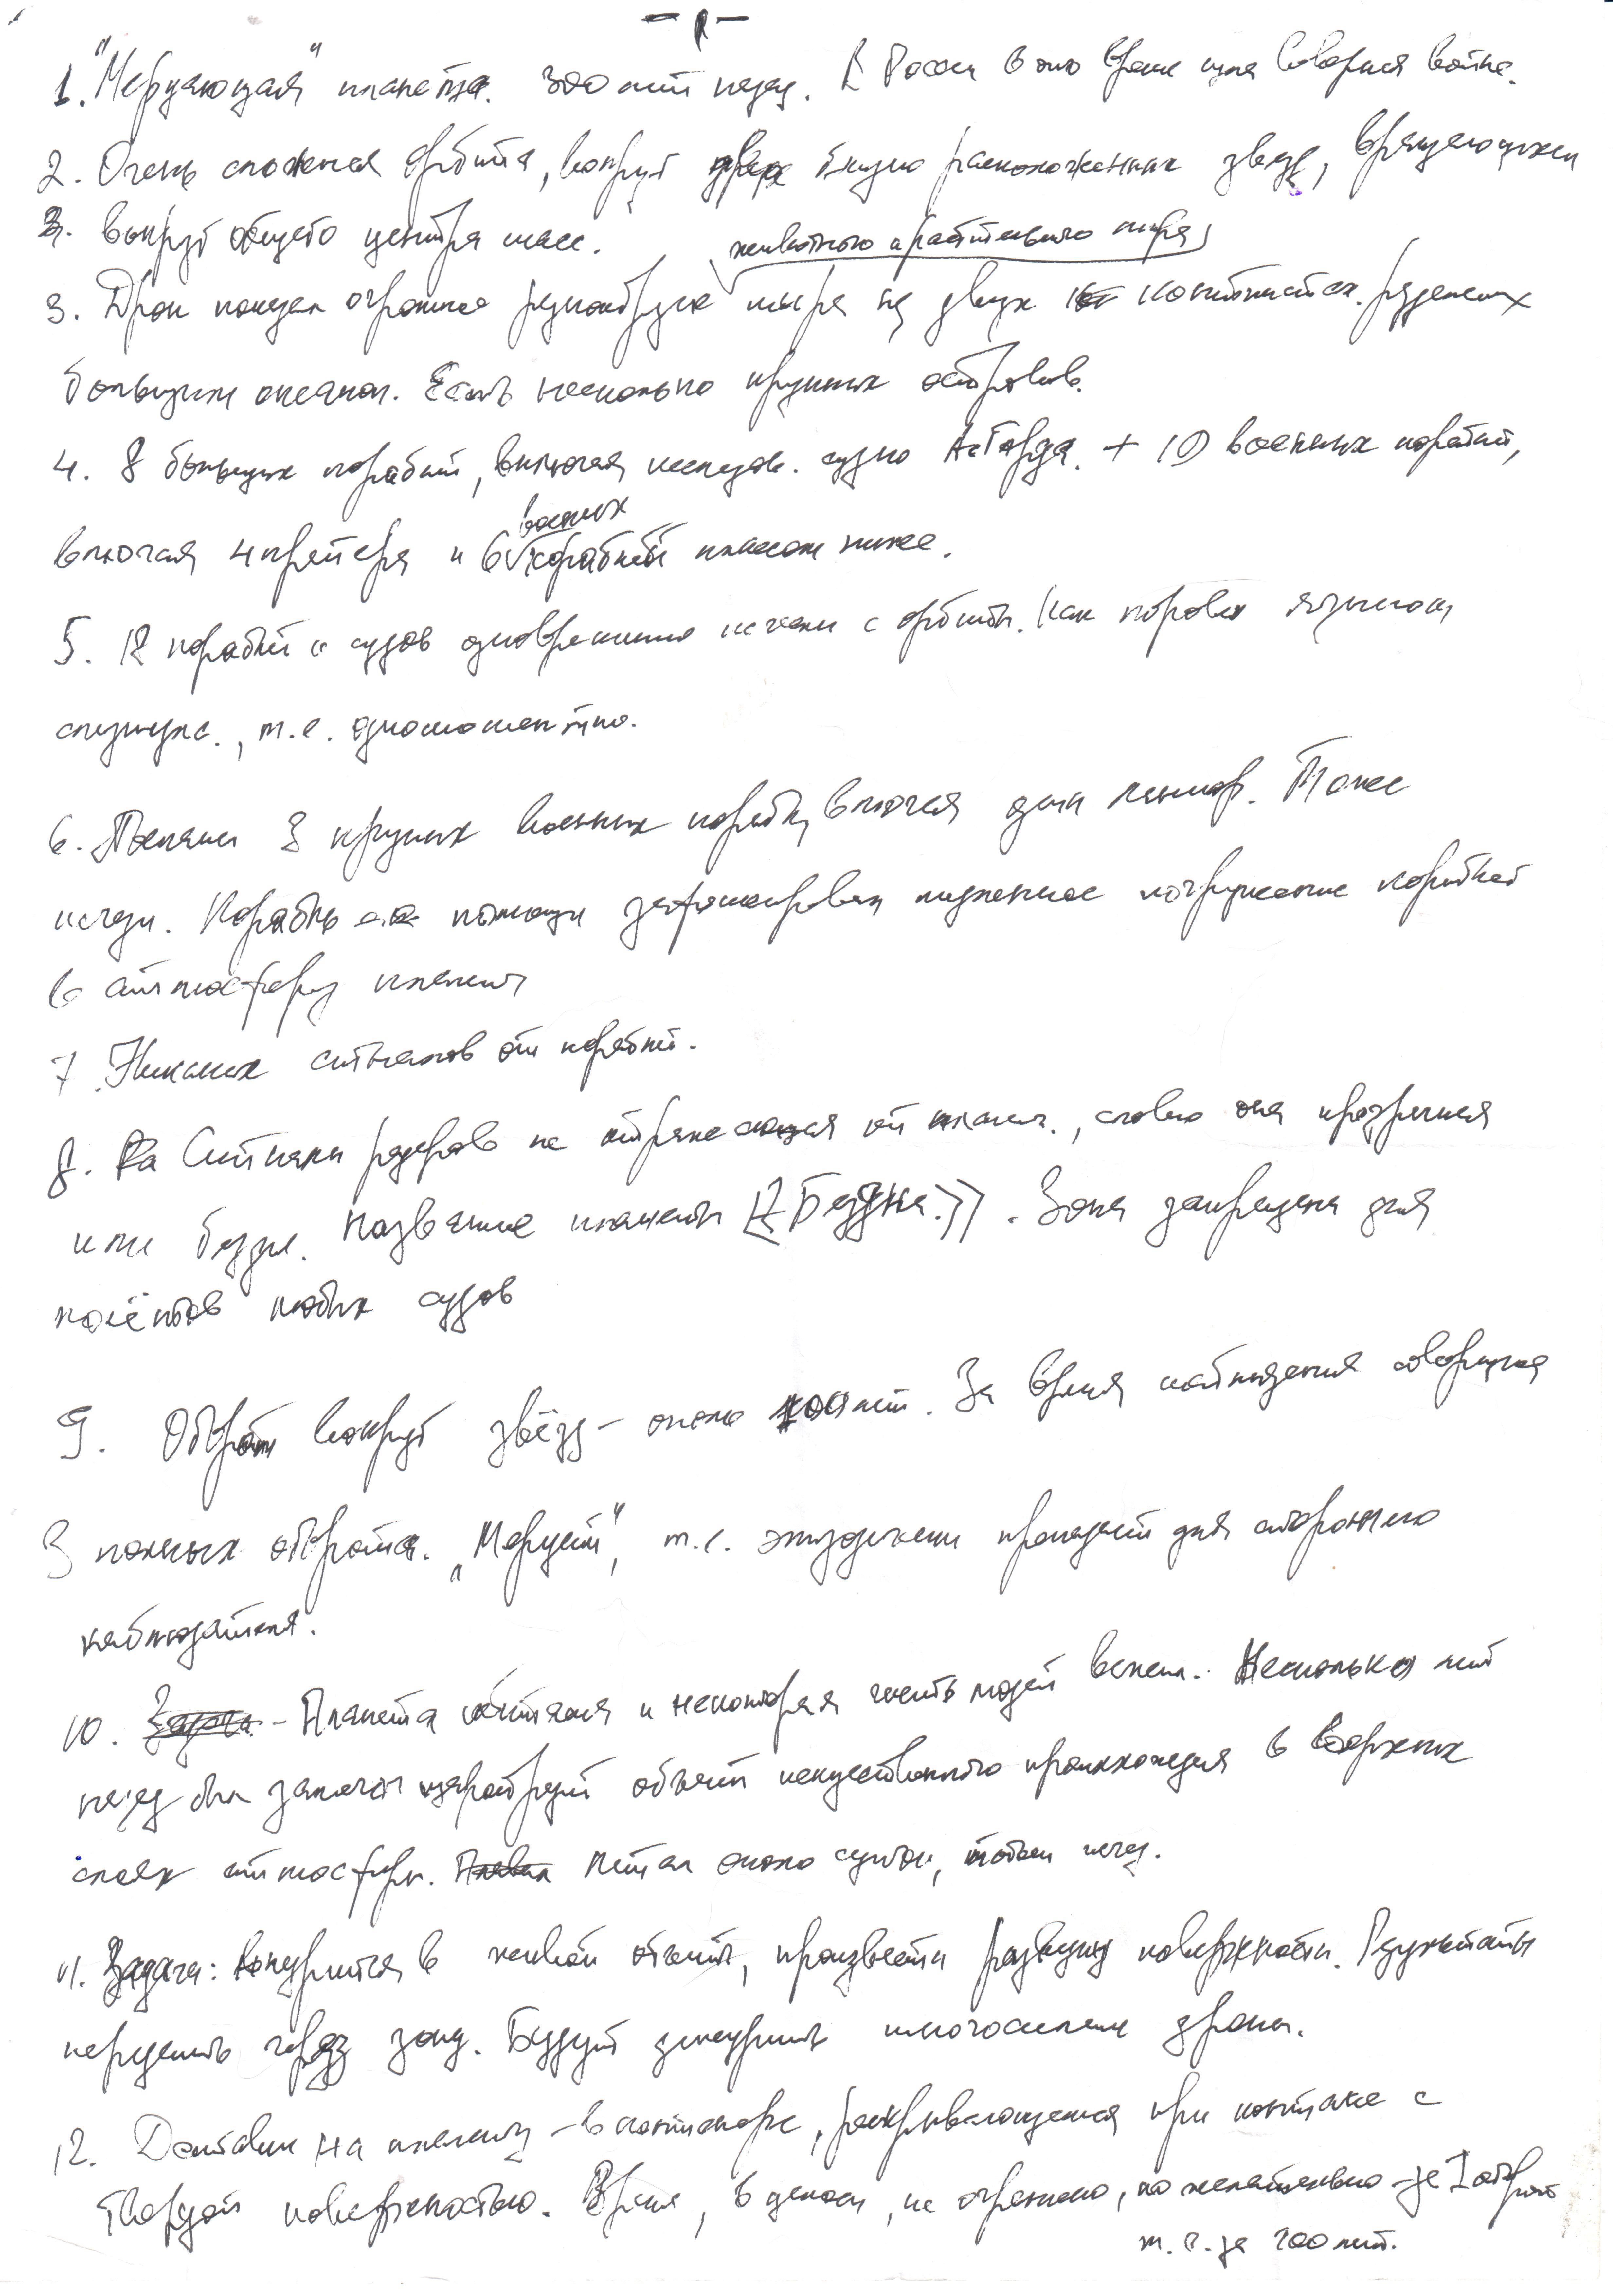 - 1 -
1. "Мерцающая" планета. 300 лет назад. В России в это время шла Северная война.
2. Очень сложная орбита, вокруг двух близко расположенных звезд, вращающихся
3. вокруг общего центра масс.
животного и растительного мира
3. Дрон показал огромное разнообразие мира на двух континентах, разделенных
большим океаном. Есть несколько крупных островов.
4. 8 больших кораблей, включая исследов. судно Асгарда. + 10 военных кораблей,
военных
включая 4 крейсера и 6 кораблей классом ниже.
5. 12 кораблей и судов одновременно исчезли с орбиты. Как корова языком
слизнула., т.е. одномоментно.
6. Послали 3 крупных военных корабля, включая один линкор. Тоже
исчезли. Корабль помощи зафиксировал медленное погружение кораблей
в атмосферу планеты
7. Никаких сигналов от кораблей.
8. Сигналы радаров не отражаются от планеты, словно она прозрачная
или бездна. Название планеты <<Бездна>>. Зона запрещена для
полётов любых судов
9. Оборот вокруг звёзд - около 100 лет. За время наблюдения совершила
3 полных оборота. "Мерцает", т.е. эпизодически пропадает для стороннего
наблюдателя.
10. - Планета обитаема и некоторая часть людей Несколько лет
назад был замечен объект искусственного происхождения в верхних
слоях атмосферы. Летал около суток, потом исчез.
11. Задача: внедриться в живой объект, произвести разведку поверхности. Результаты
передать через зонд. Будут дежурить многоцелевые дроны.
12. Доставка на планету - в контейнере, раскрывающемся при контакте с
твердой поверхностью. Время, в целом, не ограничено, но желательно - за 1 оборот
т.е. за 100 лет.